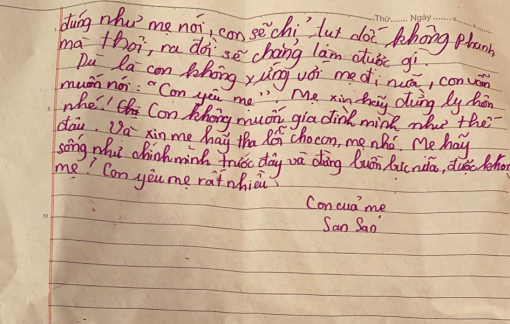 Thứ....... Ngày.......
đúng như mẹ nói, con sẽ chỉ tụt dốc không phanh
mà thôi, ra đời sẽ chẳng làm được gì.
Dù là con không xứng với mẹ đi nữa, con vẫn
muốn nói: "Con yêu mẹ"! Mẹ xin hãy đừng ly hôn
nhé! Con không muốn gia đình mình như thế
đâu. Và xin mẹ hãy tha lỗi cho con, mẹ nhá. Mẹ hãy
sống như chính mình trước đây và đừng buồn bực nữa, được không
mẹ! Con yêu mẹ rất nhiều
Con của mẹ
San San